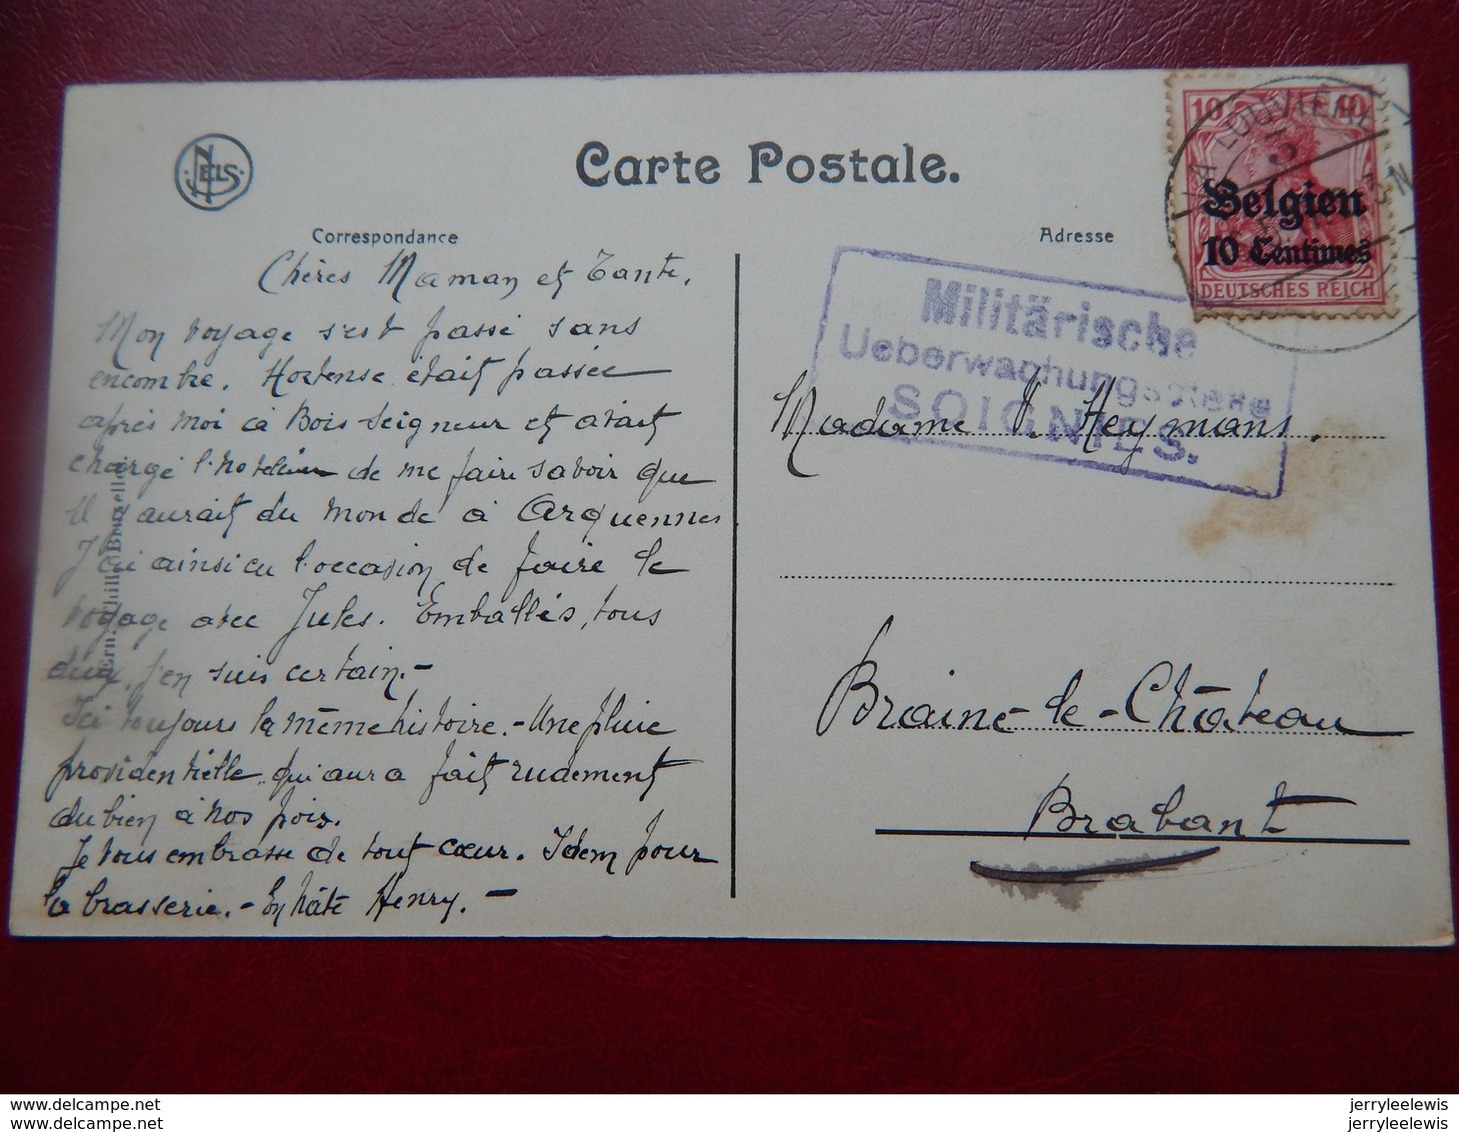 NELS
Carte Postale.
Correspondance
Adresse
LA LOUVIÈRE
5
10 10
Belgien
10 Centimes
DEUTSCHES REICH
Militärische
Ueberwachungsstelle
SOIGNIES.
Chères Maman et Tante,
Mon voyage s'est passé sans
encombre. Hortense était passée
après moi à Bois Seigneur et avait
chargé l'hotelier de me faire savoir que
il y aurait du monde à Arquennes.
J'ai ainsi eu l'occasion de faire le
voyage avec Jules. Emballés, tous
deux, j'en suis certain.-
Ici toujours la même histoire.- Une pluie
providentielle qui aura fait rudement
du bien à nos pois.
Je vous embrasse de tout cœur. Idem pour
la brasserie.- En hâte Henry.-
Ern. Thill, Bruxelles
Madame V. Heymans.
Braine-le-Château
Brabant
jerryleelewis
jerryleelewis
jerryleelewis
jerryleelewis